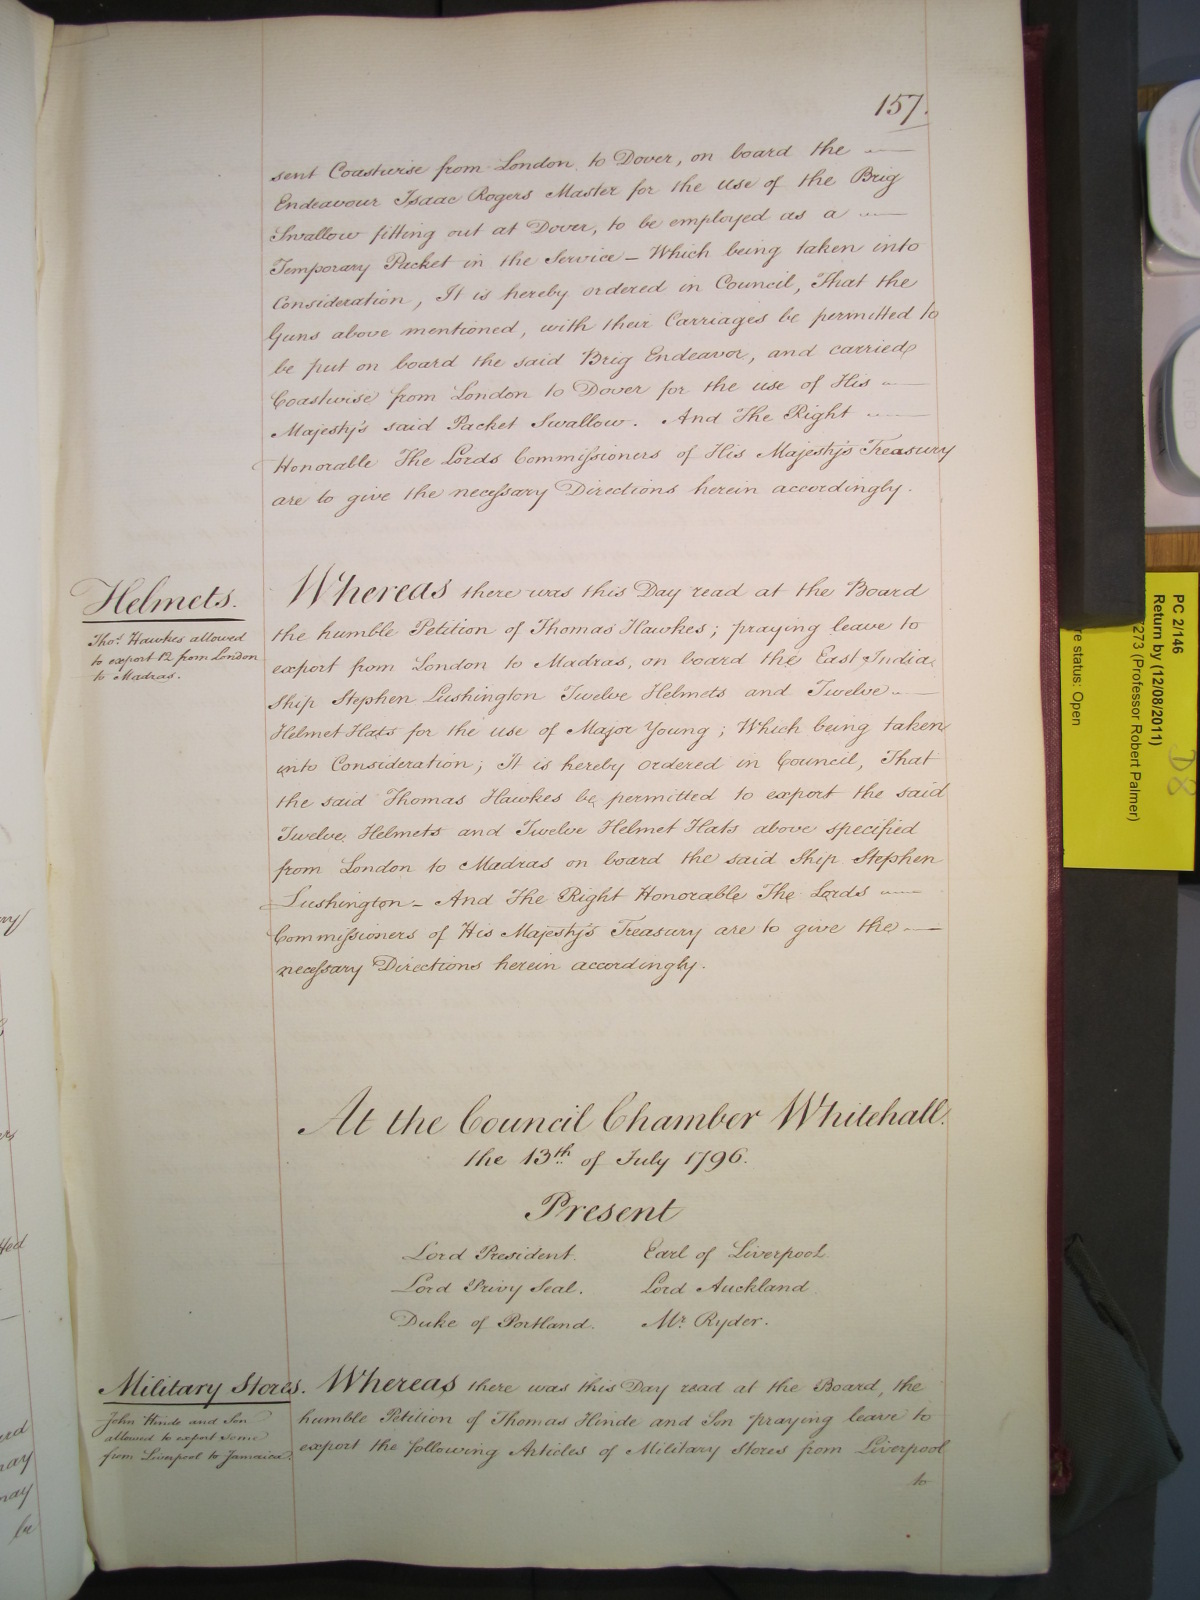 157.
sent Coastwise from London to Dover, on board the
Endeavour Isaac Rogers Master for the use of the Brig
Swallow fitting out at Dover, to be employed as a
Temporary Packet in the Service – Which being taken into
Consideration, It is hereby ordered in Council, That the
Guns above mentioned, with their Carriages be permitted to
be put on board the said Brig Endeavor, and carried
Coastwise from London to Dover for the use of His
Majesty's said Packet Swallow. And The Right
Honorable The Lords Commissioners of His Majesty's Treasury
are to give the necessary Directions herein accordingly.
Helmets.
Thos. Hawkes allowed
to export 12 from London
to Madras.
Whereas there was this Day read at the Board
the humble Petition of Thomas Hawkes; praying leave to
export from London to Madras, on board the East India
Ship Stephen Lushington Twelve Helmets and Twelve
Helmet Hats for the use of Major Young; Which being taken
into Consideration; It is hereby ordered in Council, That
the said Thomas Hawkes be permitted to export the said
Twelve Helmets and Twelve Helmet Hats above specified
from London to Madras on board the said Ship Stephen
Lushington – And The Right Honorable The Lords
Commissioners of His Majesty's Treasury are to give the
necessary Directions herein accordingly.
At the Council Chamber Whitehall.
the 13th of July 1796.
Present
Lord President. Earl of Liverpool
Lord Privy Seal. Lord Auckland
Duke of Portland. Mr. Ryder.
Military Stores.
John Hinde and Son
allowed to export some
from Liverpool to Jamaica.
Whereas there was this Day read at the Board, the
humble Petition of Thomas Hinde and Son praying leave to
export the following Articles of Military Stores from Liverpool
to
PC 2/146
Return by (12/08/2011)
273 (Professor Robert Palmer)
re status: Open
D8